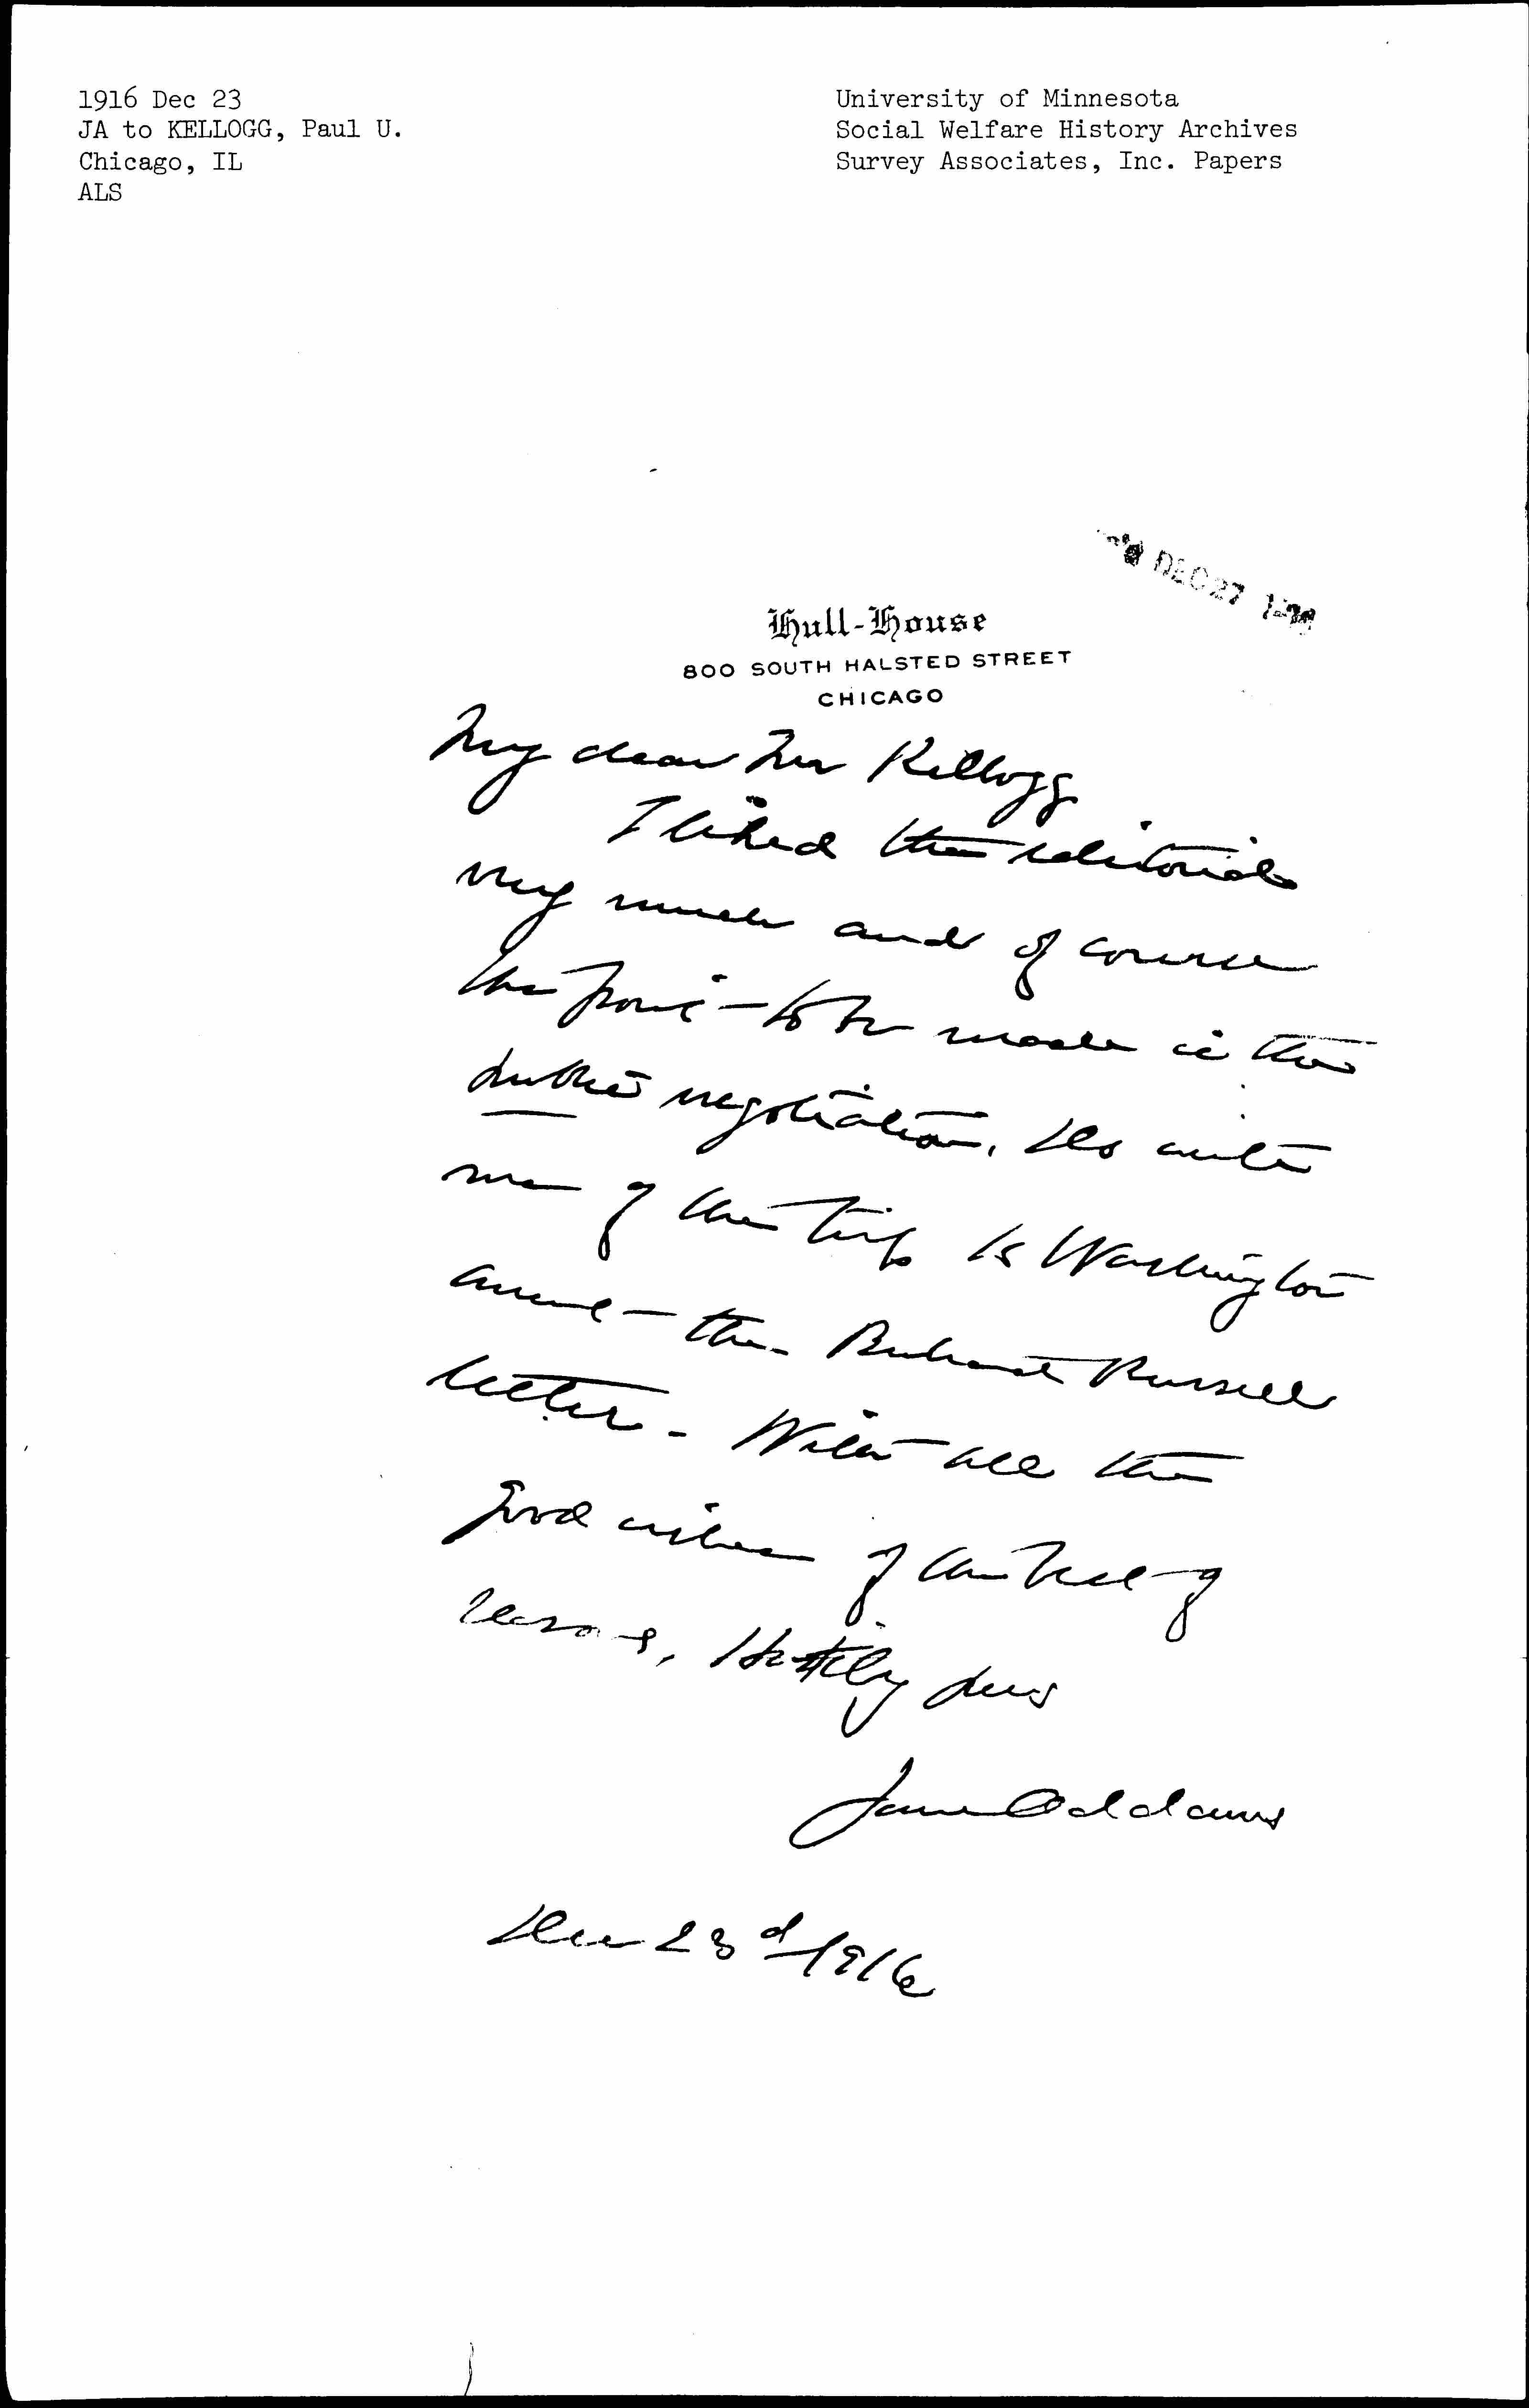 1916 Dec 23
JA to KELLOGG, Paul U.
Chicago, IL
ALS
University of Minnesota
Social Welfare History Archives
Survey Associates, Inc. Papers
DEC 27
Hull-House
800 SOUTH HALSTED STREET
CHICAGO
My dear Mr Kellogg
I liked the editorial
very much and of course
the point to be made is the
public negotiation. Do write
me of the trip to Washington
anent the Bertrand Russell
letter - With all the
good wishes of the
season, Hastily yours
Jane Addams
Dec 23d 1916